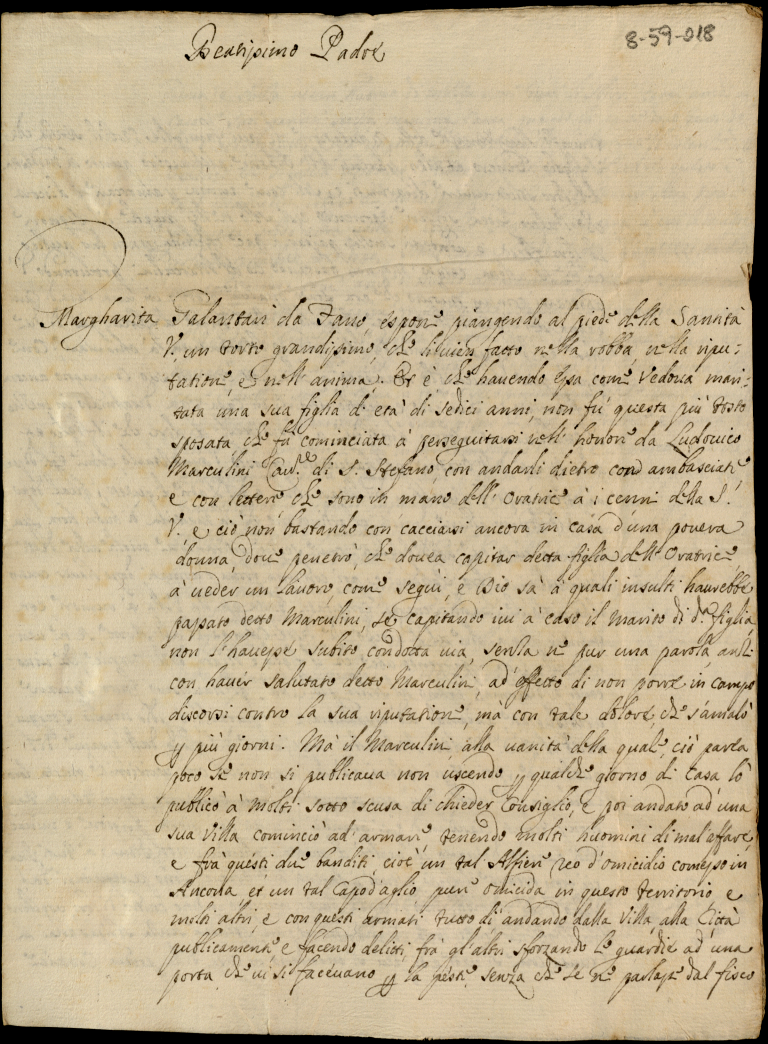 Beatissimo Padre
8-59-018
Margharita Galantari da Fano, espone piangendo al piede della Santità
V. un torto grandissimo, che li vien fatto nella robba, nella ripu-
tatione, e nell'anima. Et è che havendo essa come Vedova mari-
tata una sua figlia di età di sedici anni, non fù questa più tosto
sposata, che fù cominciata à perseguitarsi nell'honore da Ludovico
Marculini Cavre. di S. Stefano, con andarli dietro con ambasciate
e con lettere che sono in mano dell'Oratrice à i cenni della S.
V. e ciò non bastando con cacciarsi ancora in casa d'una povera
donna, dove penetrò, che dovea capitar detta figlia dell'Oratrice
à veder un lavoro, come seguì, e Dio sà à quali insulti haurebbe
passato detto Marculini, se capitando ivi à caso il Marito di da. figlia
non l'havesse subito condotta via, senza ne pur una parola, anzi
con haver salutato detto Marculini, ad effetto di non porre in campo
discorsi contro la sua riputatione, mà con tale dolore, che s'amalò
p più giorni. Mà il Marculini, alla vanità della quale, ciò parea
poco se non si publicava non uscendo p qualche giorno di casa lò
publicò à molti sotto scusa di chieder Consiglio, e poi andato ad una
sua Villa cominciò ad armare, tenendo molti huomini di mal'affare,
e frà questi due banditi, cioè un tal Alfieri reo d'omicidio comesso in
Ancona et un tal Capod'aglio pure omicida in questo territorio e
molti altri, e con questi armati tutto dì andando dalla Villa alla Città
publicamente, e facendo delitti, frà gl'altri sforzando le guardie ad una
porta che vi si facevano p la peste, senza che se ne parlasse dal fisco